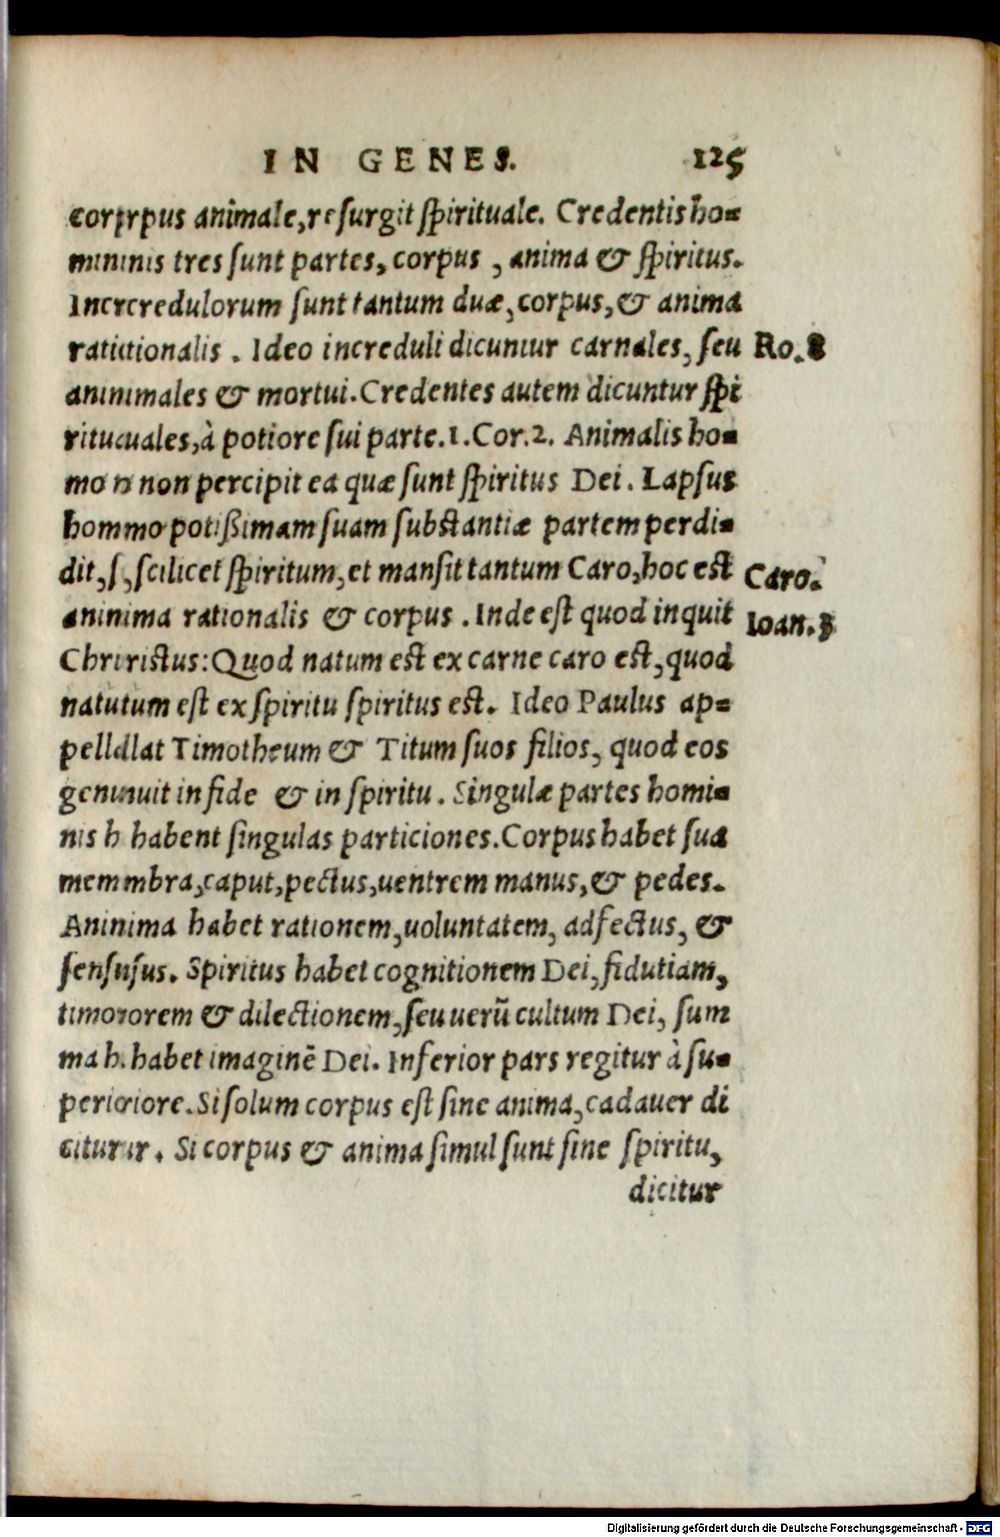 IN GENES. 125
corprpus animale, resurgit spirituale. Credentis ho-
mininis tres sunt partes, corpus, anima & spiritus.
Incrcredulorum sunt tantum duæ, corpus, & anima
ratiationalis. Ideo increduli dicuntur carnales, seu Ro. 8
aninimales & mortui. Credentes autem dicuntur spi
ritucuales, à potiore sui parte. 1. Cor. 2. Animalis ho-
mo n non percipit ea quæ sunt spiritus Dei. Lapsus
hommo potissimam suam substantiæ partem perdi-
dit, s, scilicet spiritum, et mansit tantum Caro, hoc est Caro.
aninima rationalis & corpus. Inde est quod inquit Ioan. 3
Chrıristus: Quod natum est ex carne caro est, quod
natutum est ex spiritu spiritus est. Ideo Paulus ap-
pelldlat Timotheum & Titum suos filios, quod eos
genunuit in fide & in spiritu. Singulæ partes homi-
nis h habent singulas particiones. Corpus habet sua
memmbra, caput, pectus, uentrem manus, & pedes.
Aninima habet rationem, uoluntatem, adfectus, &
sensusus. Spiritus habet cognitionem Dei, fidutiam,
timororem & dilectionem, seu uerũ cultum Dei, sum
ma h. habet imaginẽ Dei. Inferior pars regitur à su-
perioriore. Si solum corpus est sine anima, cadauer di
citurur. Si corpus & anima simul sunt sine spiritu,
dicitur
Digitalisierung gefördert durch die Deutsche Forschungsgemeinschaft - DFG